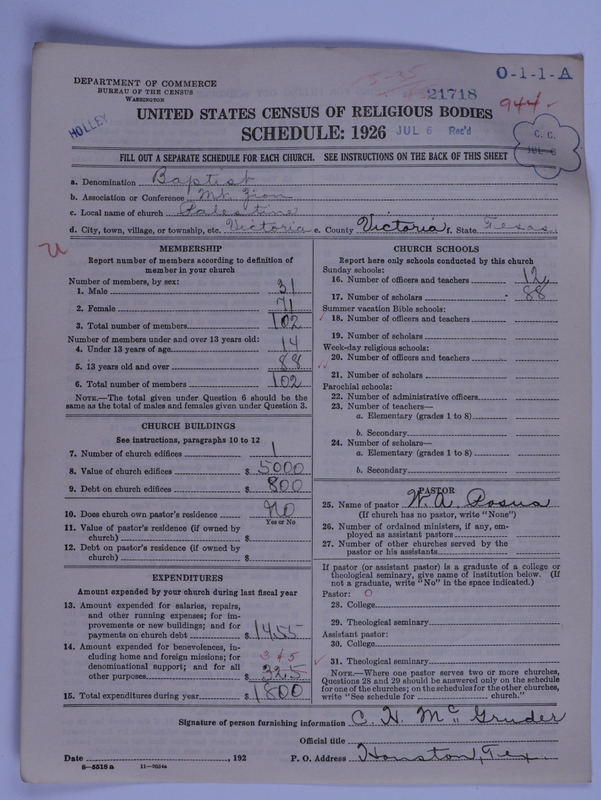 O-1-1-A
DEPARTMENT OF COMMERCE
BUREAU OF THE CENSUS
WASHINGTON
5-35
21718
944
UNITED STATES CENSUS OF RELIGIOUS BODIES
HOLLEY
SCHEDULE: 1926 JUL 6 Rec'd
C. C.
JUL 6
FILL OUT A SEPARATE SCHEDULE FOR EACH CHURCH. SEE INSTRUCTIONS ON THE BACK OF THIS SHEET
a. Denomination Baptist
b. Association or Conference Mt. Zion
c. Local name of church Palestine
d. City, town, village, or township, etc. Victoria e. County Victoria f. State Texas
MEMBERSHIP
Report number of members according to definition of
member in your church
Number of members, by sex:
1. Male 31
2. Female 71
3. Total number of members 102
Number of members under and over 13 years old:
4. Under 13 years of age 14
5. 13 years old and over 88
6. Total number of members 102
NOTE.—The total given under Question 6 should be the
same as the total of males and females given under Question 3.
CHURCH BUILDINGS
See instructions, paragraphs 10 to 12
7. Number of church edifices 1
8. Value of church edifices $ 5000
9. Debt on church edifices $ 800
10. Does church own pastor's residence? No
Yes or No
11. Value of pastor's residence (if owned by
church) $
12. Debt on pastor's residence (if owned by
church) $
EXPENDITURES
Amount expended by your church during last fiscal year
13. Amount expended for salaries, repairs,
and other running expenses; for im-
provements or new buildings; and for
payments on church debt $ 1455
14. Amount expended for benevolences, in-
cluding home and foreign missions; for
denominational support; and for all
other purposes $ 325
345
15. Total expenditures during year $ 1800
CHURCH SCHOOLS
Report here only schools conducted by this church
Sunday schools:
16. Number of officers and teachers 12
17. Number of scholars 88
Summer vacation Bible schools:
18. Number of officers and teachers
19. Number of scholars
Week-day religious schools:
20. Number of officers and teachers
21. Number of scholars
Parochial schools:
22. Number of administrative officers
23. Number of teachers—
a. Elementary (grades 1 to 8)
b. Secondary
24. Number of scholars—
a. Elementary (grades 1 to 8)
b. Secondary
PASTOR
25. Name of pastor W. A.
(If church has no pastor, write "None")
26. Number of ordained ministers, if any, em-
ployed as assistant pastors
27. Number of other churches served by the
pastor or his assistants
If pastor (or assistant pastor) is a graduate of a college or
theological seminary, give name of institution below. (If
not a graduate, write "No" in the space indicated.)
Pastor: O
28. College
29. Theological seminary
Assistant pastor:
30. College
31. Theological seminary
NOTE.—Where one pastor serves two or more churches,
Questions 28 and 29 should be answered only on the schedule
for one of the churches; on the schedules for the other churches,
write "See schedule for ---------- church."
Signature of person furnishing information C. H. McGruder
Official title
Date , 192 P. O. Address Houston, Tex.
8—5518a 11—9054a